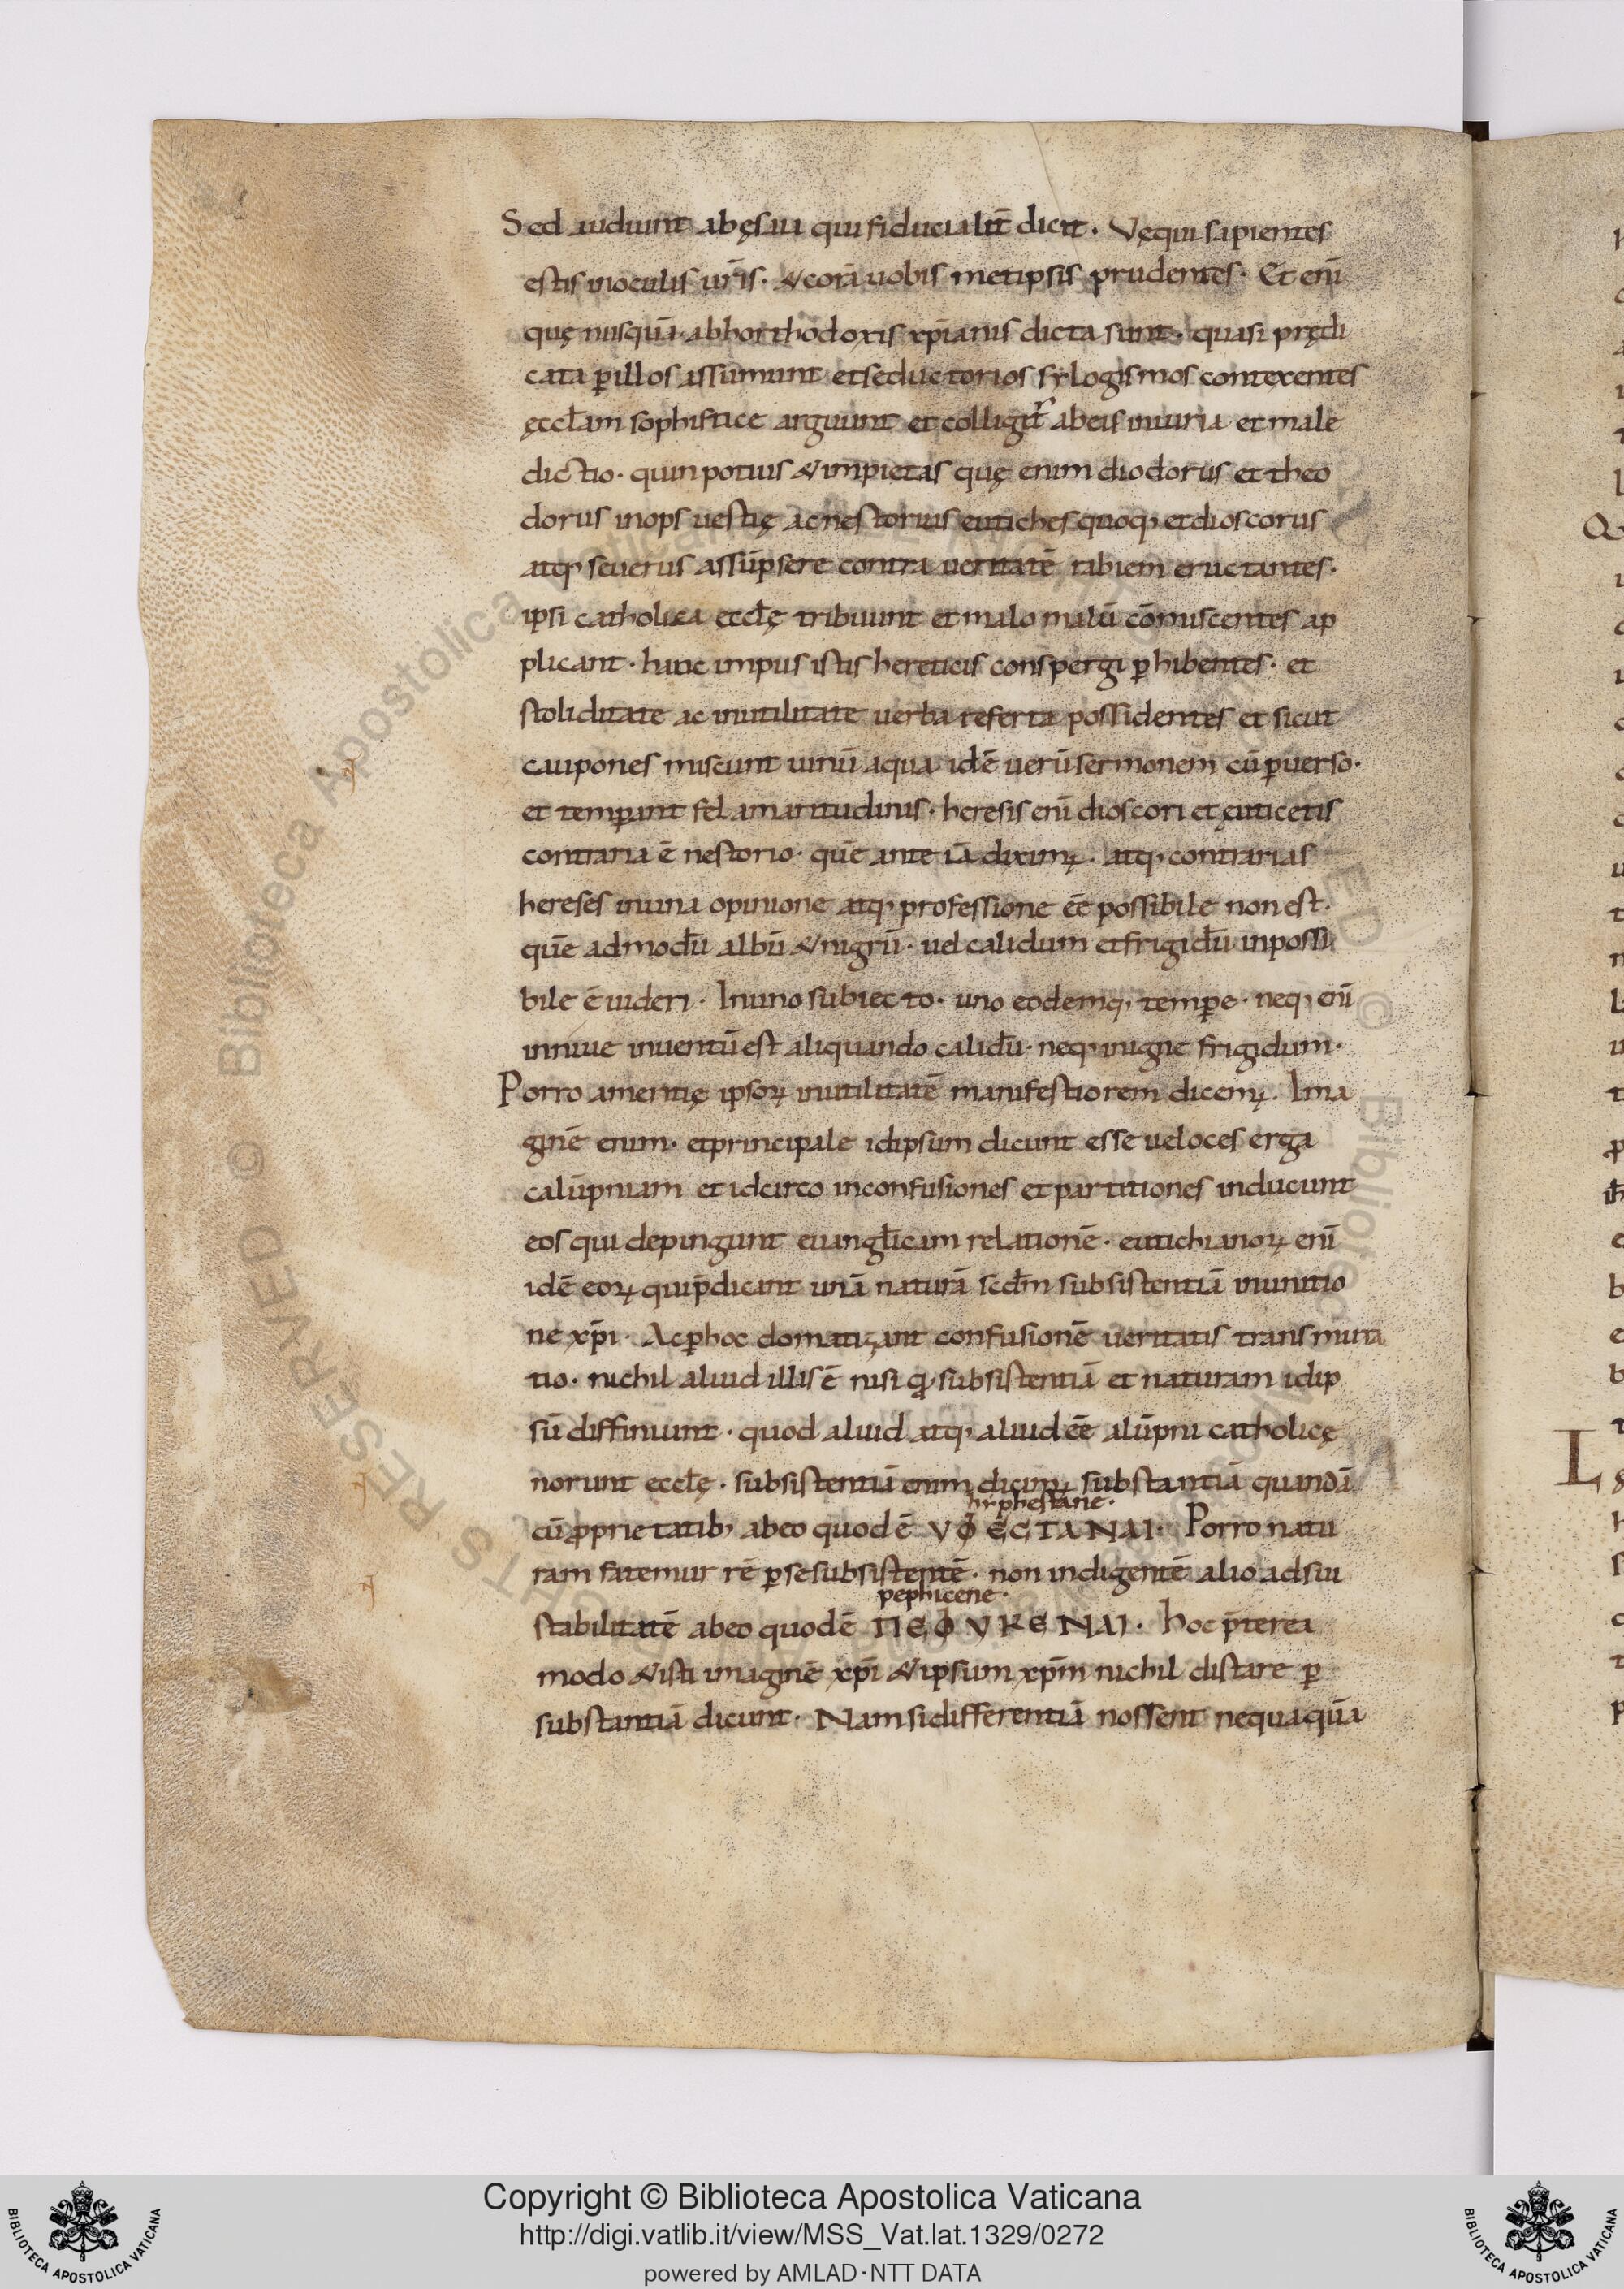 Sed audiunt abęsaia qui fiducialit̄ dicit. Vęqui sapientes
estis inoculis ur̄is. &corā uobis metipsis prudentes. Et enī
quę nusquā abhorthodoxis xp̄ianis dicta sunt. quasi prędi
cata ꝑillos assumunt et seductorios syllogismos contexentes
ęccl̄am sophistice arguunt et colligit᷑ abeis iniuria et male
dictio. quin potius &impietas quę enim diodorus et theo
dorus inops uestię ac nestorius eutiches quoq; et dioscorus
atq; seuerus assūpsere contra ueritatē rabiem eructantes.
ipsi catholica eccl̄ę tribuunt et malo malū cōmiscentes ap
plicant. hanc impus istis hereticis conspergi ꝑhibentes. et
stoliditate ac inutilitate uerba referta possidentes et sicut
caupones miscunt uinū aqua idē uerū sermonem cū ꝑuerso.
et temꝑant fel amaritudinis. heresis enī dioscori et ęuticetis
contraria ē nestorio. quē ante iā diximꝰ. atq; contrarias
hereses inuna opinione atq; professione eē possibile non est.
quē admodū albū &nigrū. uel calidum et frigidū inpossi
bile ē uideri. Inuno subiecto. uno eodemq; temꝑe. neq; enī
inniue inuentū est aliquando calidū. neq; inigne frigidum.
Porro amentię ipsoꝝ inutilitatē manifestiorem dicemꝰ. Ima
ginē enim. et principale idipsum dicunt esse ueloces erga
calūpniam et idcirco inconfusiones et partitiones inducunt
eos qui depingunt euangl̄icam relationē. eutichianoꝝ enī
idē eoꝝ qui p̄dicant unā naturā scd̄m subsistentiā inunitio
ne xp̄i. Ac ꝑhoc domatizant confusionē ueritatis transmuta
tio. nichil aliud illis ē nisi q̣ subsistentiā et naturam idip
sū diffiniunt. quod aliud atq; aliud eē alūpni catholicę
norunt eccl̄ę. subsistentiā enim dicimꝰ substantiā quandā
hyphestane.
cū ꝓprietatib; abeo quod ē ΥΦЄCTANAI. Porro natu
ram fatemur rē ꝑse subsistentē. non indigentē alio ad sui
pephicene.
stabilitatē abeo quod ē ΠЄΦΥΚЄNAI. hoc p̄terea
modo &isti imaginē xp̄i &ipsum xp̄m nichil distare ꝑ
substantiā dicunt. Nam si differentiā nossent nequaquā
Copyright © Biblioteca Apostolica Vaticana
http://digi.vatlib.it/view/MSS_Vat.lat.1329/0272
powered by AMLAD·NTT DATA